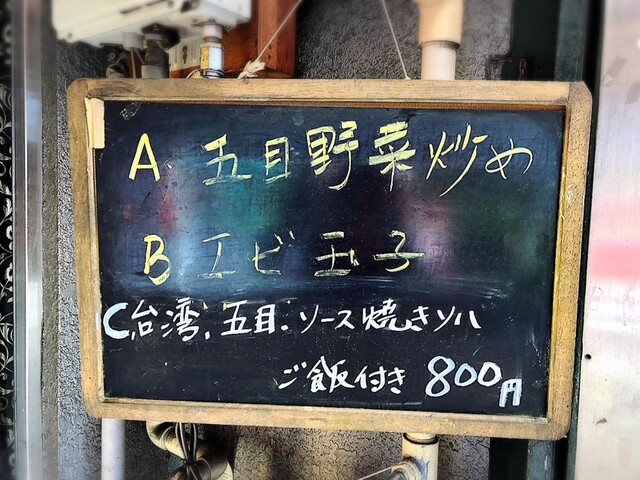 A. 五目野菜炒め
B エビ玉子
C,台湾,五目.ソース焼きソハ
ご飯付き 800円